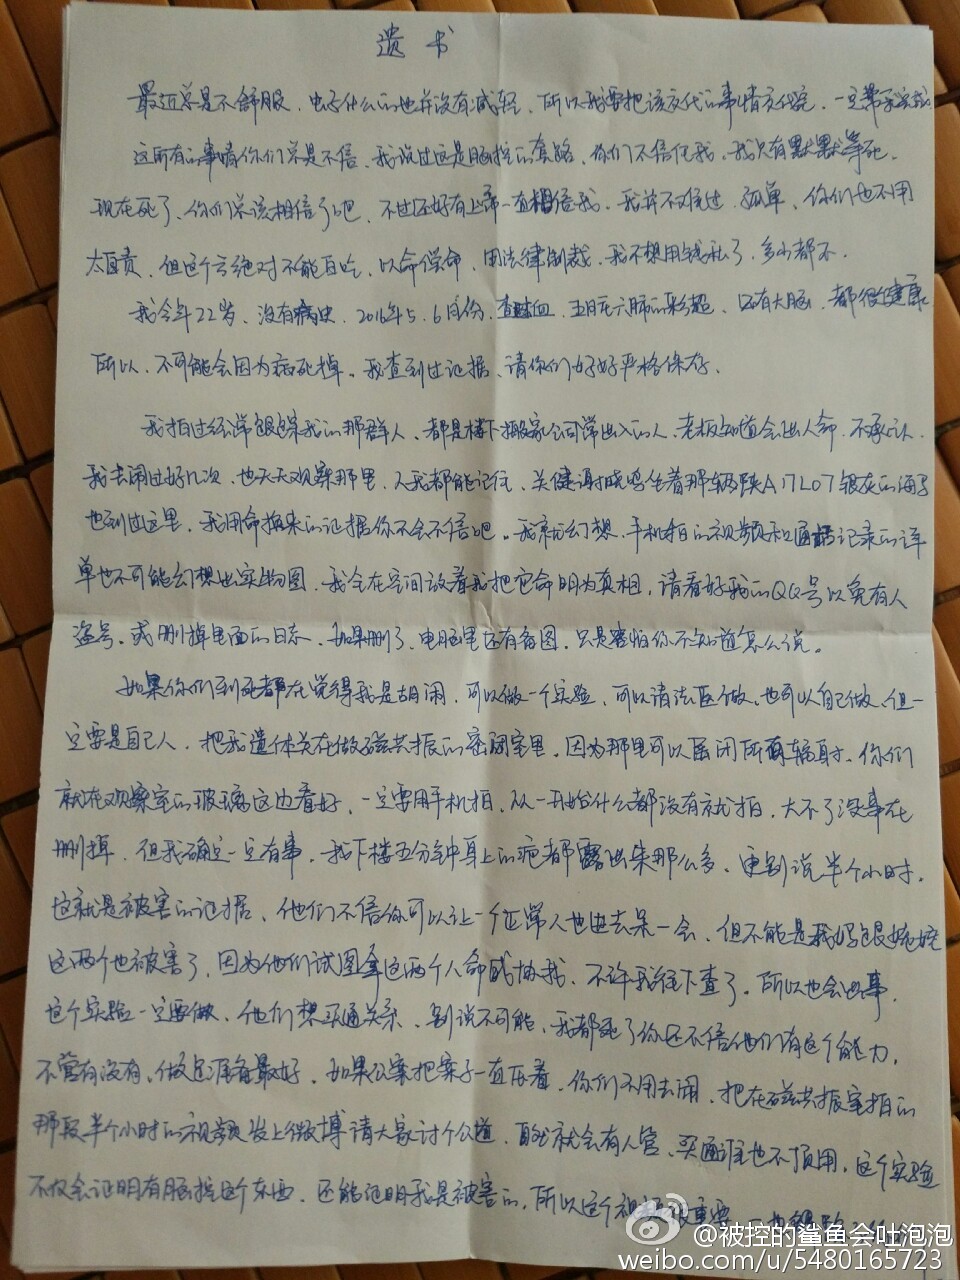 遗书
最近总是不舒服、电子什么的也并没有减轻、所以我要把该交代的事情交代完、一定帮我
这所有的事情你们总是不信、我说过这是脑控的套路、你们不信任我、我只有默默等死、
现在死了、你们总该相信了吧、不过还好有上帝一直相信我、我并不孤单、你们也不用
太自责、但这个亏绝对不能白吃、以命偿命、用法律制裁、我不想用钱私了、多少都不、
我今年22岁、没有病史、2016年5、6月份、查血、五月在六肺的彩超、还有大脑、都很健康
所以、不可能会因为病死掉。我查到过证据、请你们好好严格保存、
我拍过经常跟踪我的那群人、都是楼下搬家公司常出入的人、老板知道会出人命、不承认、
我去闹过好几次、也天天观察那里、人我都能记住、关健谢晓鸣坐着那辆陕A17L07银灰的海马
也到过这里、我用命换来的证据你不会不信吧。我就算幻想、手机拍的视频和通话记录的详
单也不可能幻想出实物图、我会在空间放着我把它命明为真相、请看好我的QQ号以免有人
盗号、或删掉里面的日志、如果删了、电脑里还有备图、只是害怕你不知道怎么说。
如果你们到死都在觉得我是胡闹、可以做一个实验、可以请法医做、也可以自己做、但一
定要是自己人、把我遗体关在做磁共振的密闭室里、因为那里可以屏闭所有辐射、你们
就在观察室的玻璃这边看好、一定要用手机拍、从一开始什么都没有就拍、大不了没事在
删掉、但我确定一定有事、我下楼五分钟身上的疤都露出来那么多、更别说半个小时、
这就是被害的证据、他们不信你可以让一个正常人也进去呆一会、但不能是我妈跟婉婉
这两个也被害了、因为他们试图拿这两个人命威协我、不许我往下查了、所以也会出事、
这个实验一定要做、他们想买通关系、别说不可能、我都死了你还不信他们有这个能力、
不管有没有、做足准备最好、如果公案把案子一直压着、你们不用去闹、把在磁共振室拍的
那段半个小时的视频发上微博请大家讨个公道、自然就会有人管、买通谁也不顶用、这个实验
不仅会证明有脑控这个东西、还能证明我是被害的、所以这个视频很重要、一
@被控的鲨鱼会吐泡泡
weibo.com/u/5480165723